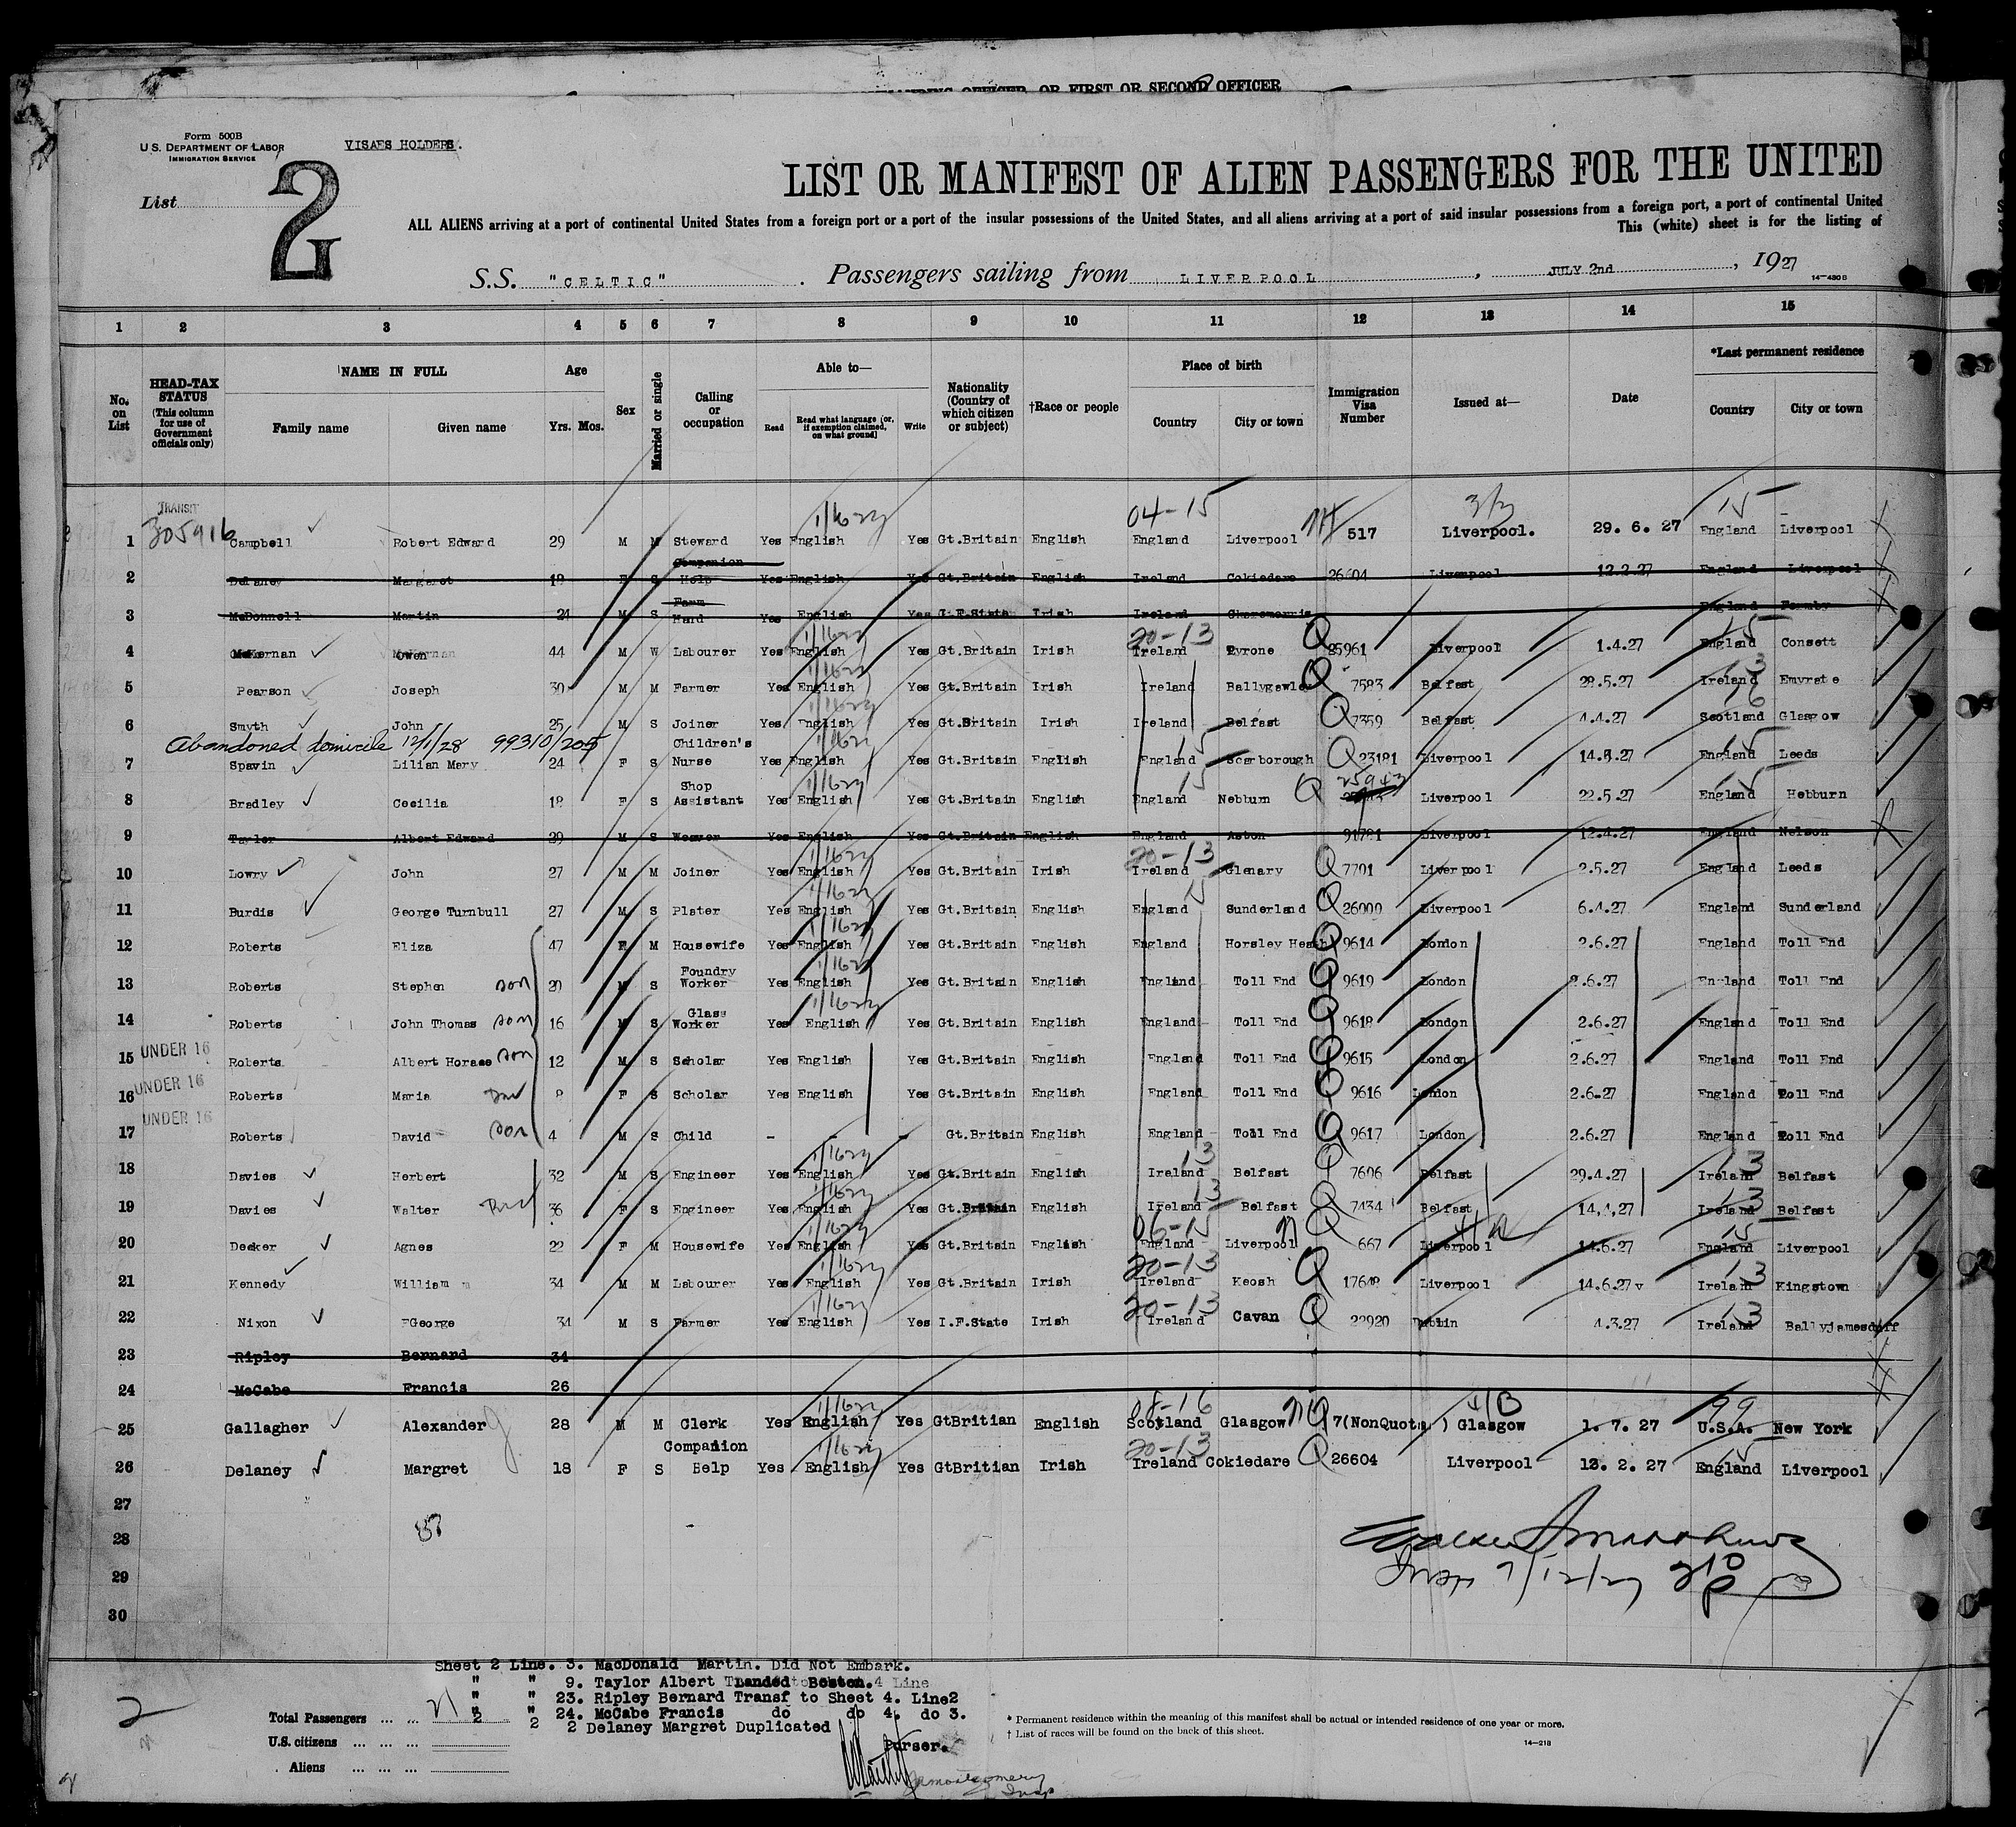 COMMANDING OFFICER, OR FIRST OR SECOND OFFICER
Form 500B
U.S. DEPARTMENT OF LABOR
IMMIGRATION SERVICE
VISAES HOLDERS.
List 2
LIST OR MANIFEST OF ALIEN PASSENGERS FOR THE UNITED
ALL ALIENS arriving at a port of continental United States from a foreign port or a port of the insular possessions of the United States, and all aliens arriving at a port of said insular possessions from a foreign port, a port of continental United
This (white) sheet is for the listing of
S.S. "CELTIC" . Passengers sailing from LIVERPOOL , JULY 2nd , 1927
14-430B
1 2 3 4 5 6 7 8 9 10 11 12 13 14 15
No. on List
HEAD-TAX STATUS (This column for use of Government officials only)
NAME IN FULL Family name Given name
Age Yrs. Mos.
Sex
Married or single
Calling or occupation
Able to— Read Read what language [or, if exemption claimed, on what ground] Write
Nationality (Country of which citizen or subject)
†Race or people
Place of birth Country City or town
Immigration Visa Number
Issued at—
Date
*Last permanent residence Country City or town
TRANSIT 04-15 15
1 305916 Campbell Robert Edward 29 M M Steward Yes English Yes Gt.Britain English England Liverpool 517 Liverpool. 29. 6. 27 England Liverpool
2 Delaney Margaret 18 F S Companion Help Yes English Yes Gt.Britain English Ireland Cokiedare 26604 Liverpool 12.2.27 England Liverpool
3 McDonnell Martin 24 M S Farm Hand Yes English Yes I.F.State Irish Ireland England Formby
20-13 15
4 McKernan Owen 44 M W Labourer Yes English Yes Gt.Britain Irish Ireland Tyrone Q 25961 Liverpool 1.4.27 England Consett
5 Pearson Joseph 30 M M Farmer Yes English Yes Gt.Britain Irish Ireland Ballygawley Q 7583 Belfast 28.5.27 Ireland Emyrate
6 Smyth John 25 M S Joiner Yes English Yes Gt.Britain Irish Ireland Belfast Q 7359 Belfast 4.4.27 Scotland Glasgow
Abandoned domicile 12/1/28 99310/205
7 Spavin Lilian Mary 24 F S Children's Nurse Yes English Yes Gt.Britain English England Scarborough Q 23181 Liverpool 14.5.27 England Leeds
8 Bradley Cecilia 18 F S Shop Assistant Yes English Yes Gt.Britain English England Nebburn Q 25943 Liverpool 22.5.27 England Hebburn
9 Taylor Albert Edward 29 M S Weaver Yes English Yes Gt.Britain English England Aston 91781 Liverpool 12.4.27 England Nelson
20-13
10 Lowry John 27 M M Joiner Yes English Yes Gt.Britain Irish Ireland Glenary Q 7701 Liverpool 2.5.27 England Leeds
11 Burdis George Turnbull 27 M S Plater Yes English Yes Gt.Britain English England Sunderland Q 26000 Liverpool 6.4.27 England Sunderland
12 Roberts Eliza 47 F M Housewife Yes English Yes Gt.Britain English England Horsley Heath Q 9614 London 2.6.27 England Toll End
13 Roberts Stephen son 20 M S Foundry Worker Yes English Yes Gt.Britain English England Toll End Q 9619 London 2.6.27 England Toll End
14 Roberts John Thomas son 16 M S Glass Worker Yes English Yes Gt.Britain English England Toll End Q 9618 London 2.6.27 England Toll End
15 UNDER 16 Roberts Albert Horace son 12 M S Scholar Yes English Yes Gt.Britain English England Toll End Q 9615 London 2.6.27 England Toll End
16 UNDER 16 Roberts Maria 8 F S Scholar Yes English Yes Gt.Britain English England Toll End Q 9616 London 2.6.27 England Toll End
17 UNDER 16 Roberts David son 4 M S Child - - - Gt.Britain English England Toll End Q 9617 London 2.6.27 England Toll End
18 Davies Herbert 32 M S Engineer Yes English Yes Gt.Britain English Ireland Belfast Q 7606 Belfast 29.4.27 Ireland Belfast
19 Davies Walter 36 F S Engineer Yes English Yes Gt.Britain English Ireland Belfast Q 7434 Belfast 14.4.27 Ireland Belfast
06-15 15
20 Decker Agnes 22 F M Housewife Yes English Yes Gt.Britain English England Liverpool 667 Liverpool 14.6.27 England Liverpool
20-13 13
21 Kennedy William 34 M M Labourer Yes English Yes Gt.Britain Irish Ireland Keosh Q 17648 Liverpool 14.6.27 Ireland Kingstown
20-13 13
22 Nixon George 34 M S Farmer Yes English Yes I.F.State Irish Ireland Cavan Q 22920 Dublin 4.3.27 Ireland Ballyjamesduff
23 Ripley Bernard 34
24 McCabe Francis 26
08-16 4/B 99
25 Gallagher Alexander 28 M M Clerk Yes English Yes GtBritian English Scotland Glasgow 7(NonQuota) Glasgow 1. 7. 27 U.S.A. New York
20-13 15
26 Delaney Margret 18 F S Companion Help Yes English Yes GtBritian Irish Ireland Cokiedare Q 26604 Liverpool 13. 2. 27 England Liverpool
27
28
29
30
7/12/27
Sheet 2 Line. 3. MacDonald Martin. Did Not Embark.
" " 9. Taylor Albert Landed Boston.
" " 23. Ripley Bernard Transf to Sheet 4. Line2
" " 24. McCabe Francis do do 4. do 3.
2 2 2 Delaney Margret Duplicated
Purser.
2
Total Passengers ... ... 21
U.S. citizens ... ... ...
Aliens ... ... ...
* Permanent residence within the meaning of this manifest shall be actual or intended residence of one year or more.
† List of races will be found on the back of this sheet.
14-218
Montgomery
Insp